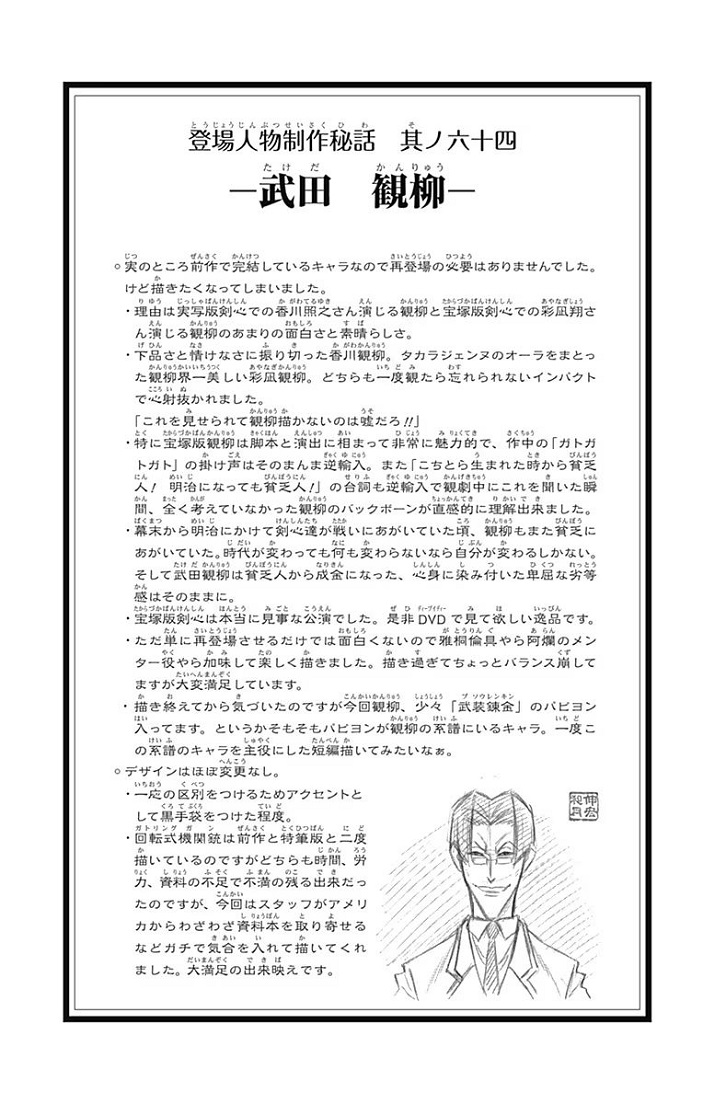 登場人物制作秘話　其ノ六十四
―武田　観柳―
○実のところ前作で完結しているキャラなので再登場の必要はありませんでした。
けど描きたくなってしまいました。
・理由は実写版剣心での香川照之さん演じる観柳と宝塚版剣心での彩凪翔さ
ん演じる観柳のあまりの面白さと素晴らしさ。
・下品さと情けなさに振り切った香川観柳。タカラジェンヌのオーラをまとっ
た観柳界一美しい彩凪観柳。どちらも一度観たら忘れられないインパクト
で心射抜かれました。
「これを見せられて観柳描かないのは嘘だろ!!」
・特に宝塚版観柳は脚本と演出に相まって非常に魅力的で、作中の「ガトガ
トガト」の掛け声はそのまんま逆輸入。また「こちとら生まれた時から貧乏
人! 明治になっても貧乏人!」の台詞も逆輸入で観劇中にこれを聞いた瞬
間、全く考えていなかった観柳のバックボーンが直感的に理解出来ました。
・幕末から明治にかけて剣心達が戦いにあがいていた頃、観柳もまた貧乏に
あがいていた。時代が変わっても何も変わらないなら自分が変わるしかない。
そして武田観柳は貧乏人から成金になった、心身に染み付いた卑屈な劣等
感はそのままに。
・宝塚版剣心は本当に見事な公演でした。是非DVDで見て欲しい逸品です。
・ただ単に再登場させるだけでは面白くないので雅桐倫具やら阿爛のメン
ター役やら加味して楽しく描きました。描き過ぎてちょっとバランス崩して
ますが大変満足しています。
・描き終えてから気づいたのですが今回観柳、少々「武装錬金」のパピヨン
入ってます。というかそもそもパピヨンが観柳の系譜にいるキャラ。一度こ
の系譜のキャラを主役にした短編描いてみたいなぁ。
○デザインはほぼ変更なし。
・一応の区別をつけるためアクセントと
して黒手袋をつけた程度。
・回転式機関銃は前作と特筆版と二度
描いているのですがどちらも時間、労
力、資料の不足で不満の残る出来だっ
たのですが、今回はスタッフがアメリ
カからわざわざ資料本を取り寄せる
などガチで気合を入れて描いてくれ
ました。大満足の出来映えです。